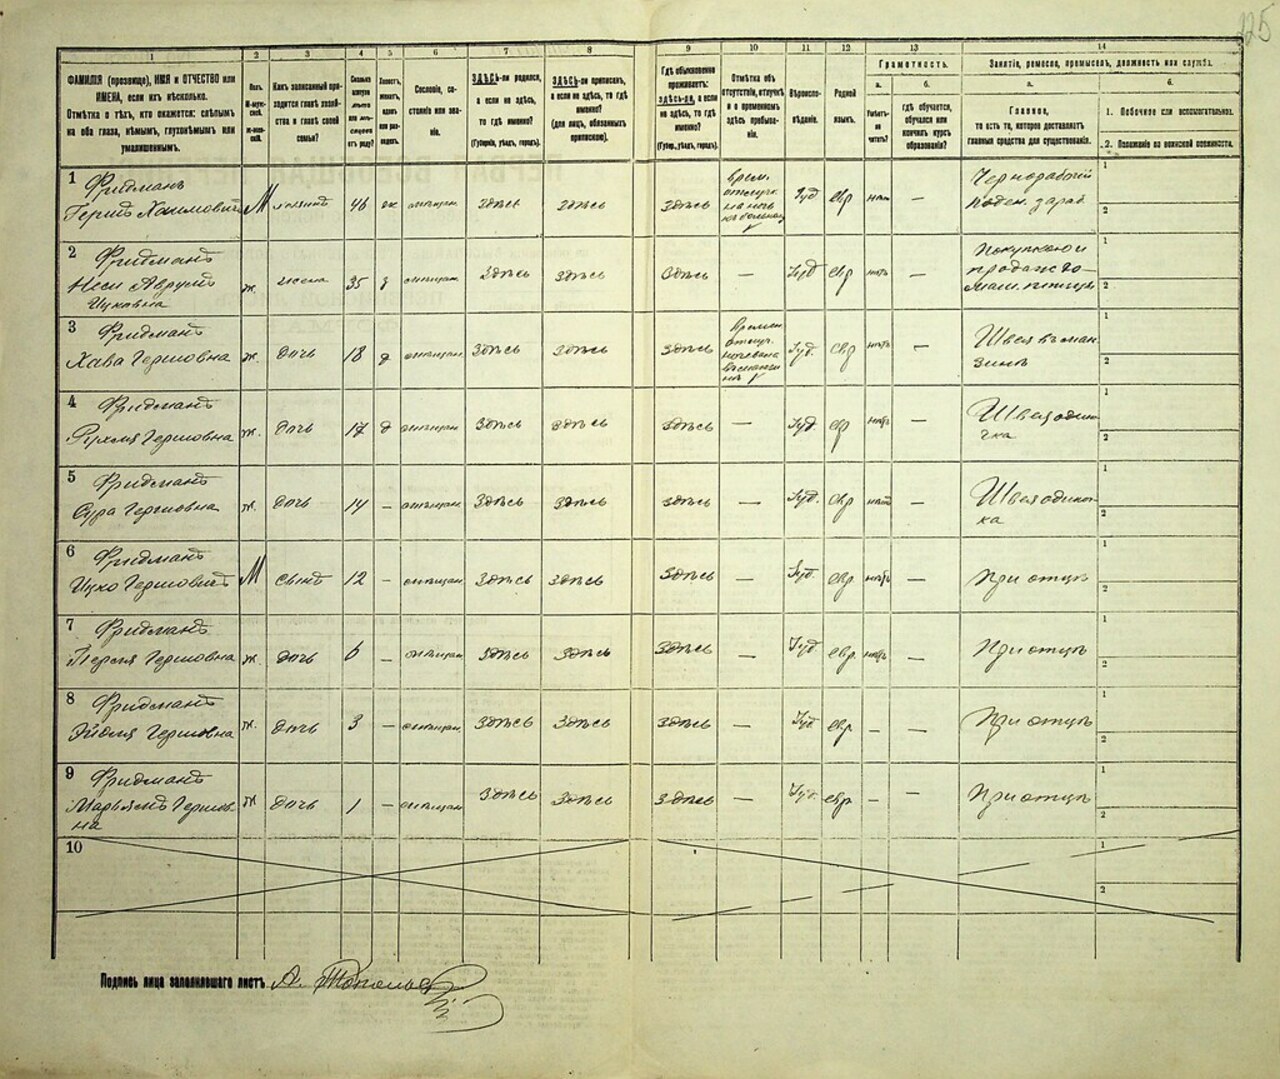 225
1 2 3 4 5 6 7 8 9 10 11 12 13 14
ФАМИЛІЯ (прозвище), ИМЯ и ОТЧЕСТВО или
ИМЕНА, если ихъ нѣсколько.
Отмѣтка о тѣхъ, кто окажется: слѣпымъ
на оба глаза, нѣмымъ, глухонѣмымъ или
умалишеннымъ.
Полъ.
М-мужской.
Ж-женскій.
Какъ записанный приходится главѣ хозяйства и главѣ своей
семьи?
Сколько
минуло
лѣтъ
или мѣсяцевъ
отъ роду?
Холостъ,
женатъ,
вдовъ
или разведенъ.
Сословіе, состояніе или званіе.
ЗДѢСЬ-ли родился,
а если не здѣсь,
то гдѣ именно?
(Губернія, уѣздъ, городъ).
ЗДѢСЬ-ли приписанъ,
а если не здѣсь, то гдѣ
именно?
(для лицъ, обязанныхъ
припискою).
Гдѣ обыкновенно
проживаетъ:
здѣсь-ли, а если
не здѣсь, то гдѣ
именно?
(Губер., уѣздъ, городъ).
Отмѣтка объ
отсутствіи, отлучкѣ
и о временномъ
здѣсь пребываніи.
Вѣроисповѣданіе.
Родной
языкъ.
Грамотность.
а.
Умѣетъ-ли
читать?
б.
гдѣ обучается,
обучался или
кончилъ курсъ
образованія?
Занятіе, ремесло, промыселъ, должность или служба.
а.
Главное,
то есть то, которое доставляетъ
главныя средства для существованія.
б.
1. Побочное или вспомогательное.
2. Положеніе по воинской повинности.
1 Фридманъ
Гершъ Хаимовичъ М хозяинъ 46 ж мѣщан. здѣсь здѣсь здѣсь
врем.
отлуч.
на ночь
Іуд евр нѣт —
Чернорабочій
Поден. зараб.
1
2
2 Фридманъ
Неси Аврумъ
Ицковна ж. жена 35 з мѣщан. Здѣсь здѣсь Здѣсь — Іуд евр нѣтъ —
Покупкою и
продажею
1
2
3 Фридманъ
Хава Гершовна ж. дочь 18 д мѣщан. здѣсь здѣсь здѣсь
Времен.
отлуч.
Іуд. евр нѣтъ —
Швея въ магазинѣ
1
2
4 Фридманъ
Рухля Гершовна ж. дочь 17 д мѣщан. здѣсь здѣсь здѣсь — Іуд евр нѣтъ —
Швея одиночка
1
2
5 Фридманъ
Сура Гершовна ж. дочь 14 — мѣщан. здѣсь здѣсь здѣсь — Іуд. евр нѣтъ —
Швея одиночка
1
2
6 Фридманъ
Ицко Гершовичъ М сынъ 12 — мѣщан. здѣсь здѣсь здѣсь — Іуд. евр. нѣтъ — При отцѣ
1
2
7 Фридманъ
Перля Гершовна ж. дочь 6 — мѣщан. здѣсь здѣсь здѣсь — Іуд. евр. нѣтъ — При отцѣ
1
2
8 Фридманъ
Эйдля Гершовна ж. дочь 3 — мѣщан. здѣсь здѣсь здѣсь — Іуд евр. — — При отцѣ
1
2
9 Фридманъ
Марьямъ Гершовна ж дочь 1 — мѣщан. здѣсь здѣсь здѣсь — Іуд. евр. — — При отцѣ
1
2
10
1
2
Подпись лица заполнившаго листъ А.